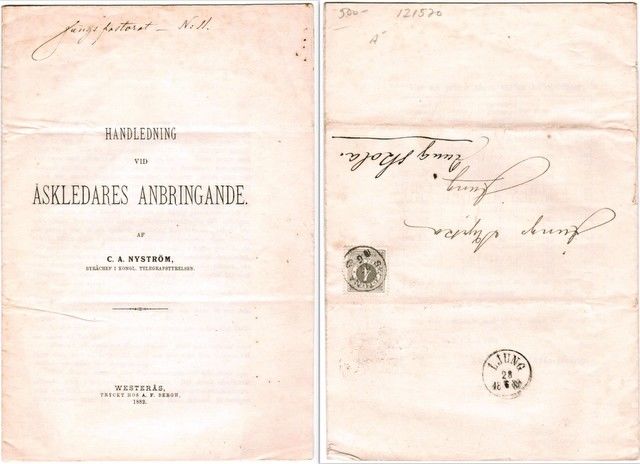 Ljungs pastorat – No 11.
HANDLEDNING
VID
ÅSKLEDARES ANBRINGANDE.
AF
C. A. NYSTRÖM,
BYRÅCHEF I KONGL. TELEGRAFSTYRELSEN.
WESTERÅS,
TRYCKT HOS A. F. BERGH,
1882.
500- 121520
Ljungs Kyrka
Ljung.
Ljungs skola.
4
LJUNG
28
6